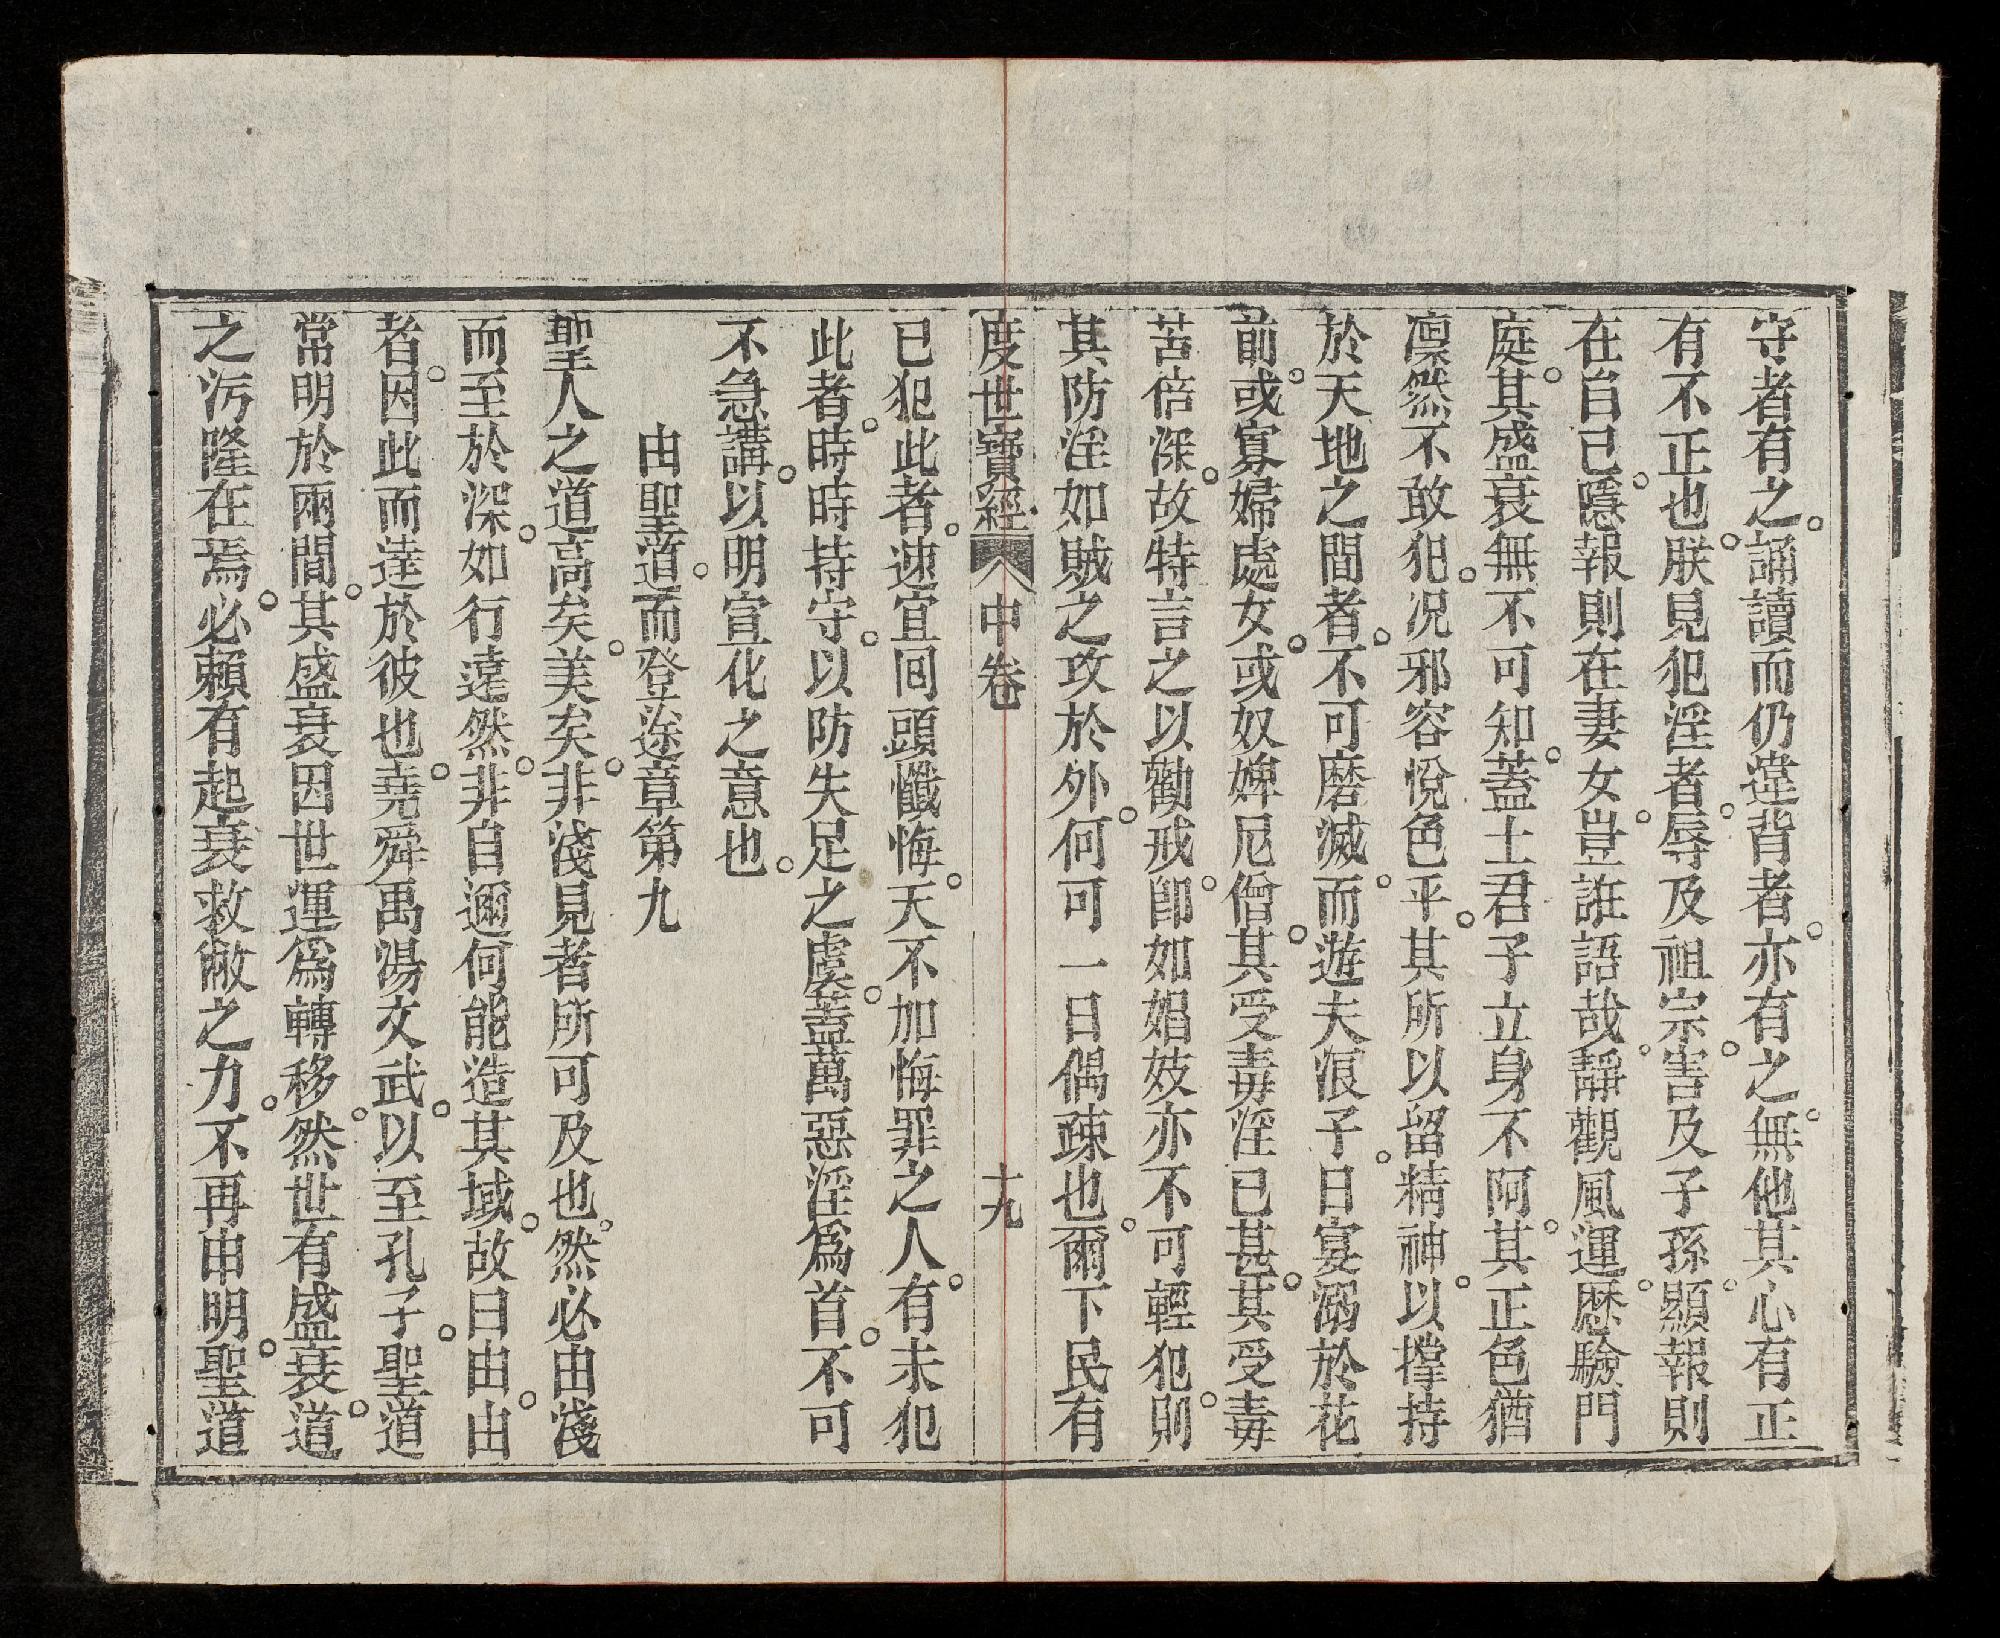 守者有之。誦讀而仍違背者。亦有之。無他其心有正
有不正也。朕見犯淫者。辱及祖宗。害及子孫。顯報則
在自己。隱報則在妻女。豈誑語哉。靜觀風運。歷驗門
庭。其盛衰無不可知。蓋士君子立身不阿。其正色猶
凛然不敢犯。况邪容悅色乎。其所以留精神。以撑持
於天地之間者。不可磨滅。而遊夫浪子。日宴溺於花
前。或寡婦處女。或奴婢尼僧。其受毒淫已甚。其受毒
苦倍深。故特言之以勸戒。卽如娼妓亦不可輕犯。則
其防淫如賊之攻於外。何可一日偶疎也。爾下民有
度世寶經 中卷 十九
已犯此者。速宜回頭懺悔。天不加悔罪之人。有未犯
此者。時時持守。以防失足之虞。蓋萬惡淫爲首。不可
不急講。以明宣化之意也。
由聖道。而登塗章第九
聖人之道高矣。美矣。非淺見者所可及也。然必由淺
而至於深。如行遠然。非自邇何能造其域。故曰由。由
者。因此而達於彼也。堯舜禹湯文武。以至孔子。聖道
常明於兩間。其盛衰因世運爲轉移。然世有盛衰。道
之汚隆在焉。必賴有起衰救敝之力。不再申明。聖道